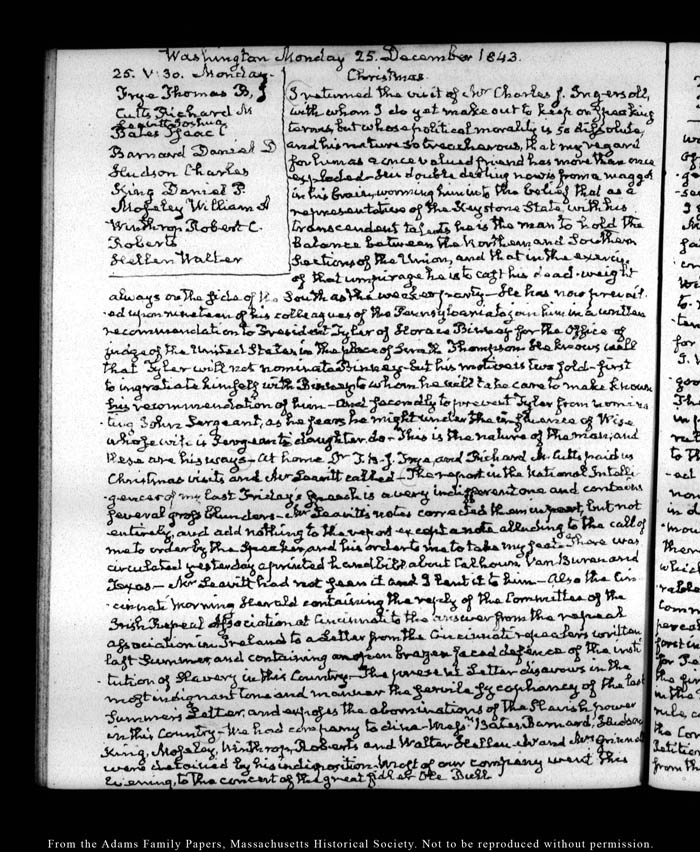 Washington Monday 25. December 1843.
25. V:30. Monday.
Frye Thomas B. J
Cutts Richard M
Leavitt Joshua
Bates Isaac C
Barnard Daniel D
Hudson Charles
King Daniel P.
Moseley William A
Winthrop Robert C.
Roberts
Hellen Walter
Christmas.
I returned the visit of Mr Charles J. Ingersoll,
with whom I do yet make out to keep on speaking
terms, but whose political morality is so dissolute,
and his nature so treacherous, that my regard
for him as a once valued friend has more than once
exploded. His double dealing now is from a maggot
in his brain, worming him into the belief that as a
representative of the Keystone State, with his
transcendent talents he is the man to hold the
Balance between the Northern and Southern
Sections of the Union, and that in the exercise
of that umpirage he is to cast his dead-weight
always on the side of the South as the weaker party. He has now prevail-
ed upon nineteen of his colleagues of the Pennsylvania to join him in a written
recommendation to President Tyler of Horace Binney for the Office of
judge of the United States, in the place of Smith Thompson. He knows well
that Tyler will not nominate Binney. but his motive is two fold. first
to ingratiate himself with Binney to whom he will take care to make known
his recommendation of him. And secondly to prevent Tyler from nomina
ting John Sergeant, as he fears he might under the influence of Wise
whose wife is Sergeants daughter, do. This is the nature of the man, and
these are his ways. At home Dr T. B. J. Frye and Richard M. Cutts paid us
Christmas visits and Mr Leavitt called. The report in the National Intelli
gencer of my last Friday's speech is a very indifferent one and contains
several gross blunders. Mr Leavitt's notes corrected them in part, but not
entirely, and add nothing to the report except a note alluding to the call of
me to order by the Speaker, and his order to me to take my seat. There was
circulated yesterday a printed hand bill about Calhoun, Van Buren and
Texas. Mr Leavitt had not seen it and I lent it to him. Also the Cin-
cinnati Morning Herald containing the reply of the Committee of the
Irish Repeal Association at Cincinnati to the answer from the repeal
association in Ireland to a Letter from the Cincinnati repealers written
last Summer, and containing an open brazen faced defence of the insti
tution of Slavery in this Country. The present Letter disavows in the
most indignant tone and manner the servile sycophancy of the last
Summer's Letter, and exposes the abominations of the Slavish power
in this Country. We had company to dine. Messrs Bates, Barnard, Hudson
King, Moseley, Winthrop, Roberts and Walter Hellen. Mr and Mrs Grinnell
were detained by his indisposition. Most of our company went this
Evening, to the concert of the great fidler Ole Bull
From the Adams Family Papers, Massachusetts Historical Society. Not to be reproduced without permission.